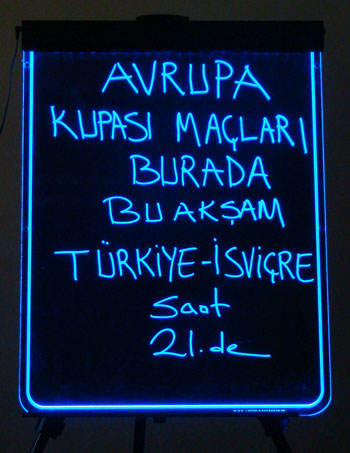 AVRUPA
KUPASI MAÇLARI
BURADA
BU AKŞAM
TÜRKİYE-İSVİÇRE
saat
21.de